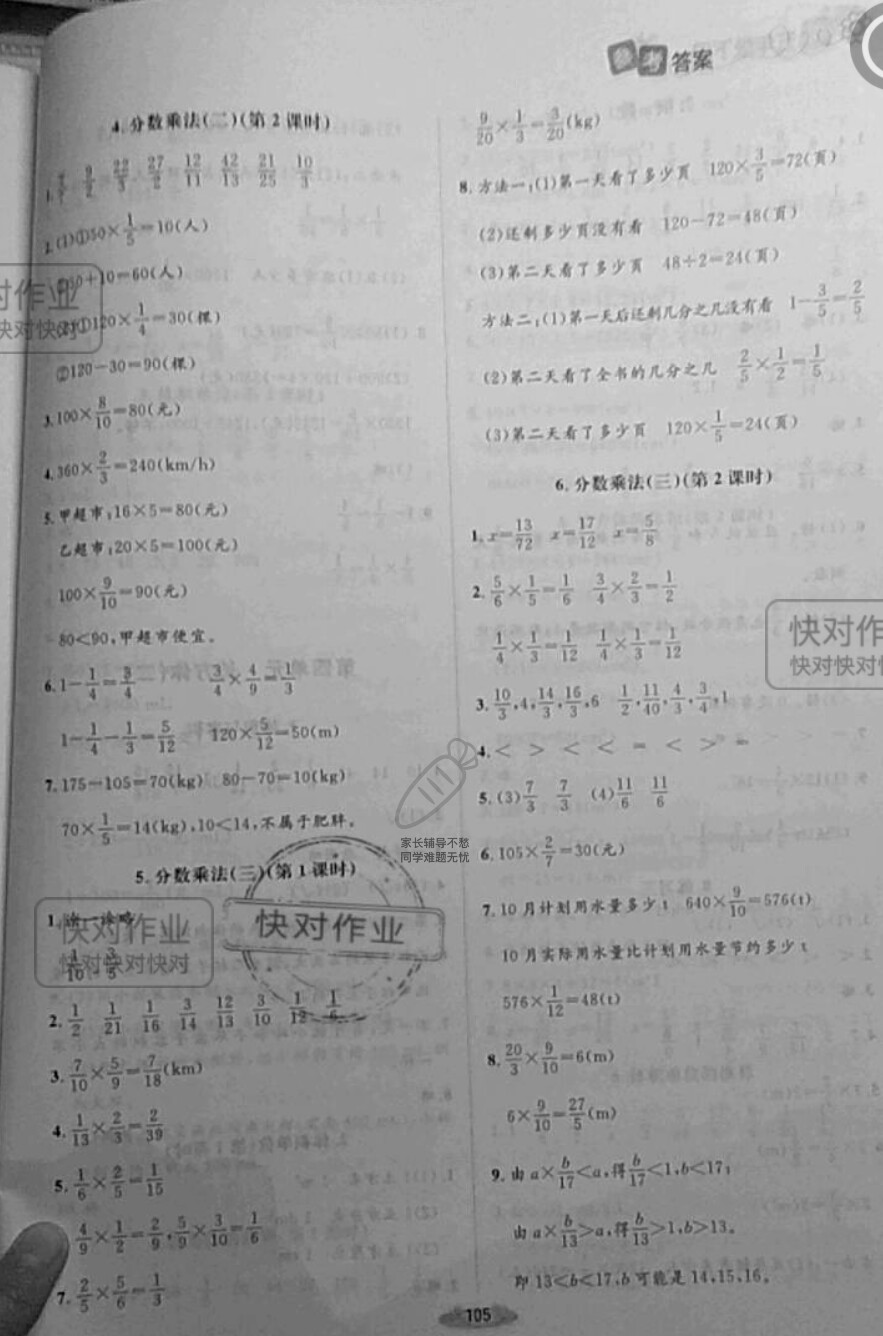 参考答案
4.分数乘法(二)(第2课时)
9/2 22/3 27/2 12/11 42/13 21/25 10/3
2.(1)①50×1/5=10(人)
②50+10=60(人)
(2)①120×1/4=30(棵)
②120-30=90(棵)
3.100×8/10=80(元)
4.360×2/3=240(km/h)
5.甲超市:16×5=80(元)
乙超市:20×5=100(元)
100×9/10=90(元)
80<90,甲超市便宜。
6.1-1/4=3/4 3/4×4/9=1/3
1-1/4-1/3=5/12 120×5/12=50(m)
7.175-105=70(kg) 80-70=10(kg)
70×1/5=14(kg),10<14,不属于肥胖。
5.分数乘法(三)(第1课时)
1.涂一涂略
1/10 3/5
2.1/2 1/21 1/16 3/14 12/13 3/10 1/12 1/6
3.7/10×5/9=7/18(km)
4.1/13×2/3=2/39
5.1/6×2/5=1/15
4/9×1/2=2/9,5/9×3/10=1/6
7.2/5×5/6=1/3
9/20×1/3=3/20(kg)
8.方法一:(1)第一天看了多少页 120×3/5=72(页)
(2)还剩多少页没有看 120-72=48(页)
(3)第二天看了多少页 48÷2=24(页)
方法二:(1)第一天后还剩几分之几没有看 1-3/5=2/5
(2)第二天看了全书的几分之几 2/5×1/2=1/5
(3)第二天看了多少页 120×1/5=24(页)
6.分数乘法(三)(第2课时)
1.x=13/72 x=17/12 x=5/8
2.5/6×1/5=1/6 3/4×2/3=1/2
1/4×1/3=1/12 1/4×1/3=1/12
3.10/3,4,14/3,16/3,6 1/2,11/40,4/3,3/4,1
4.< > < < = < > =
5.(3)7/3 7/3 (4)11/6 11/6
6.105×2/7=30(元)
7.10月计划用水量多少t 640×9/10=576(t)
10月实际用水量比计划用水量节约多少t
576×1/12=48(t)
8.20/3×9/10=6(m)
6×9/10=27/5(m)
9.由a×b/17<a,得b/17<1,b<17;
由a×b/13>a,得b/13>1,b>13。
即13<b<17,b可能是14,15,16。
105
对作业
快对快对
快对作
快对快对快
家长辅导不愁
同学难题无忧
快对作业
快对快对快对
快对作业